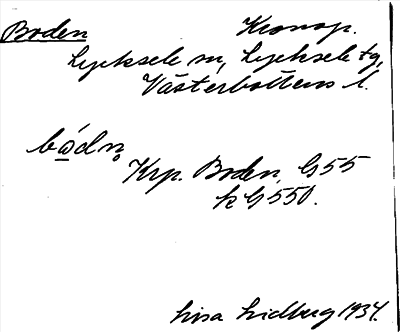 Boden Kronop.
Lycksele sn, Lycksele tg,
Västerbottens l.
bådn̥
Krp. Boden, G55
k G 550.
Lisa Lidberg 1934.